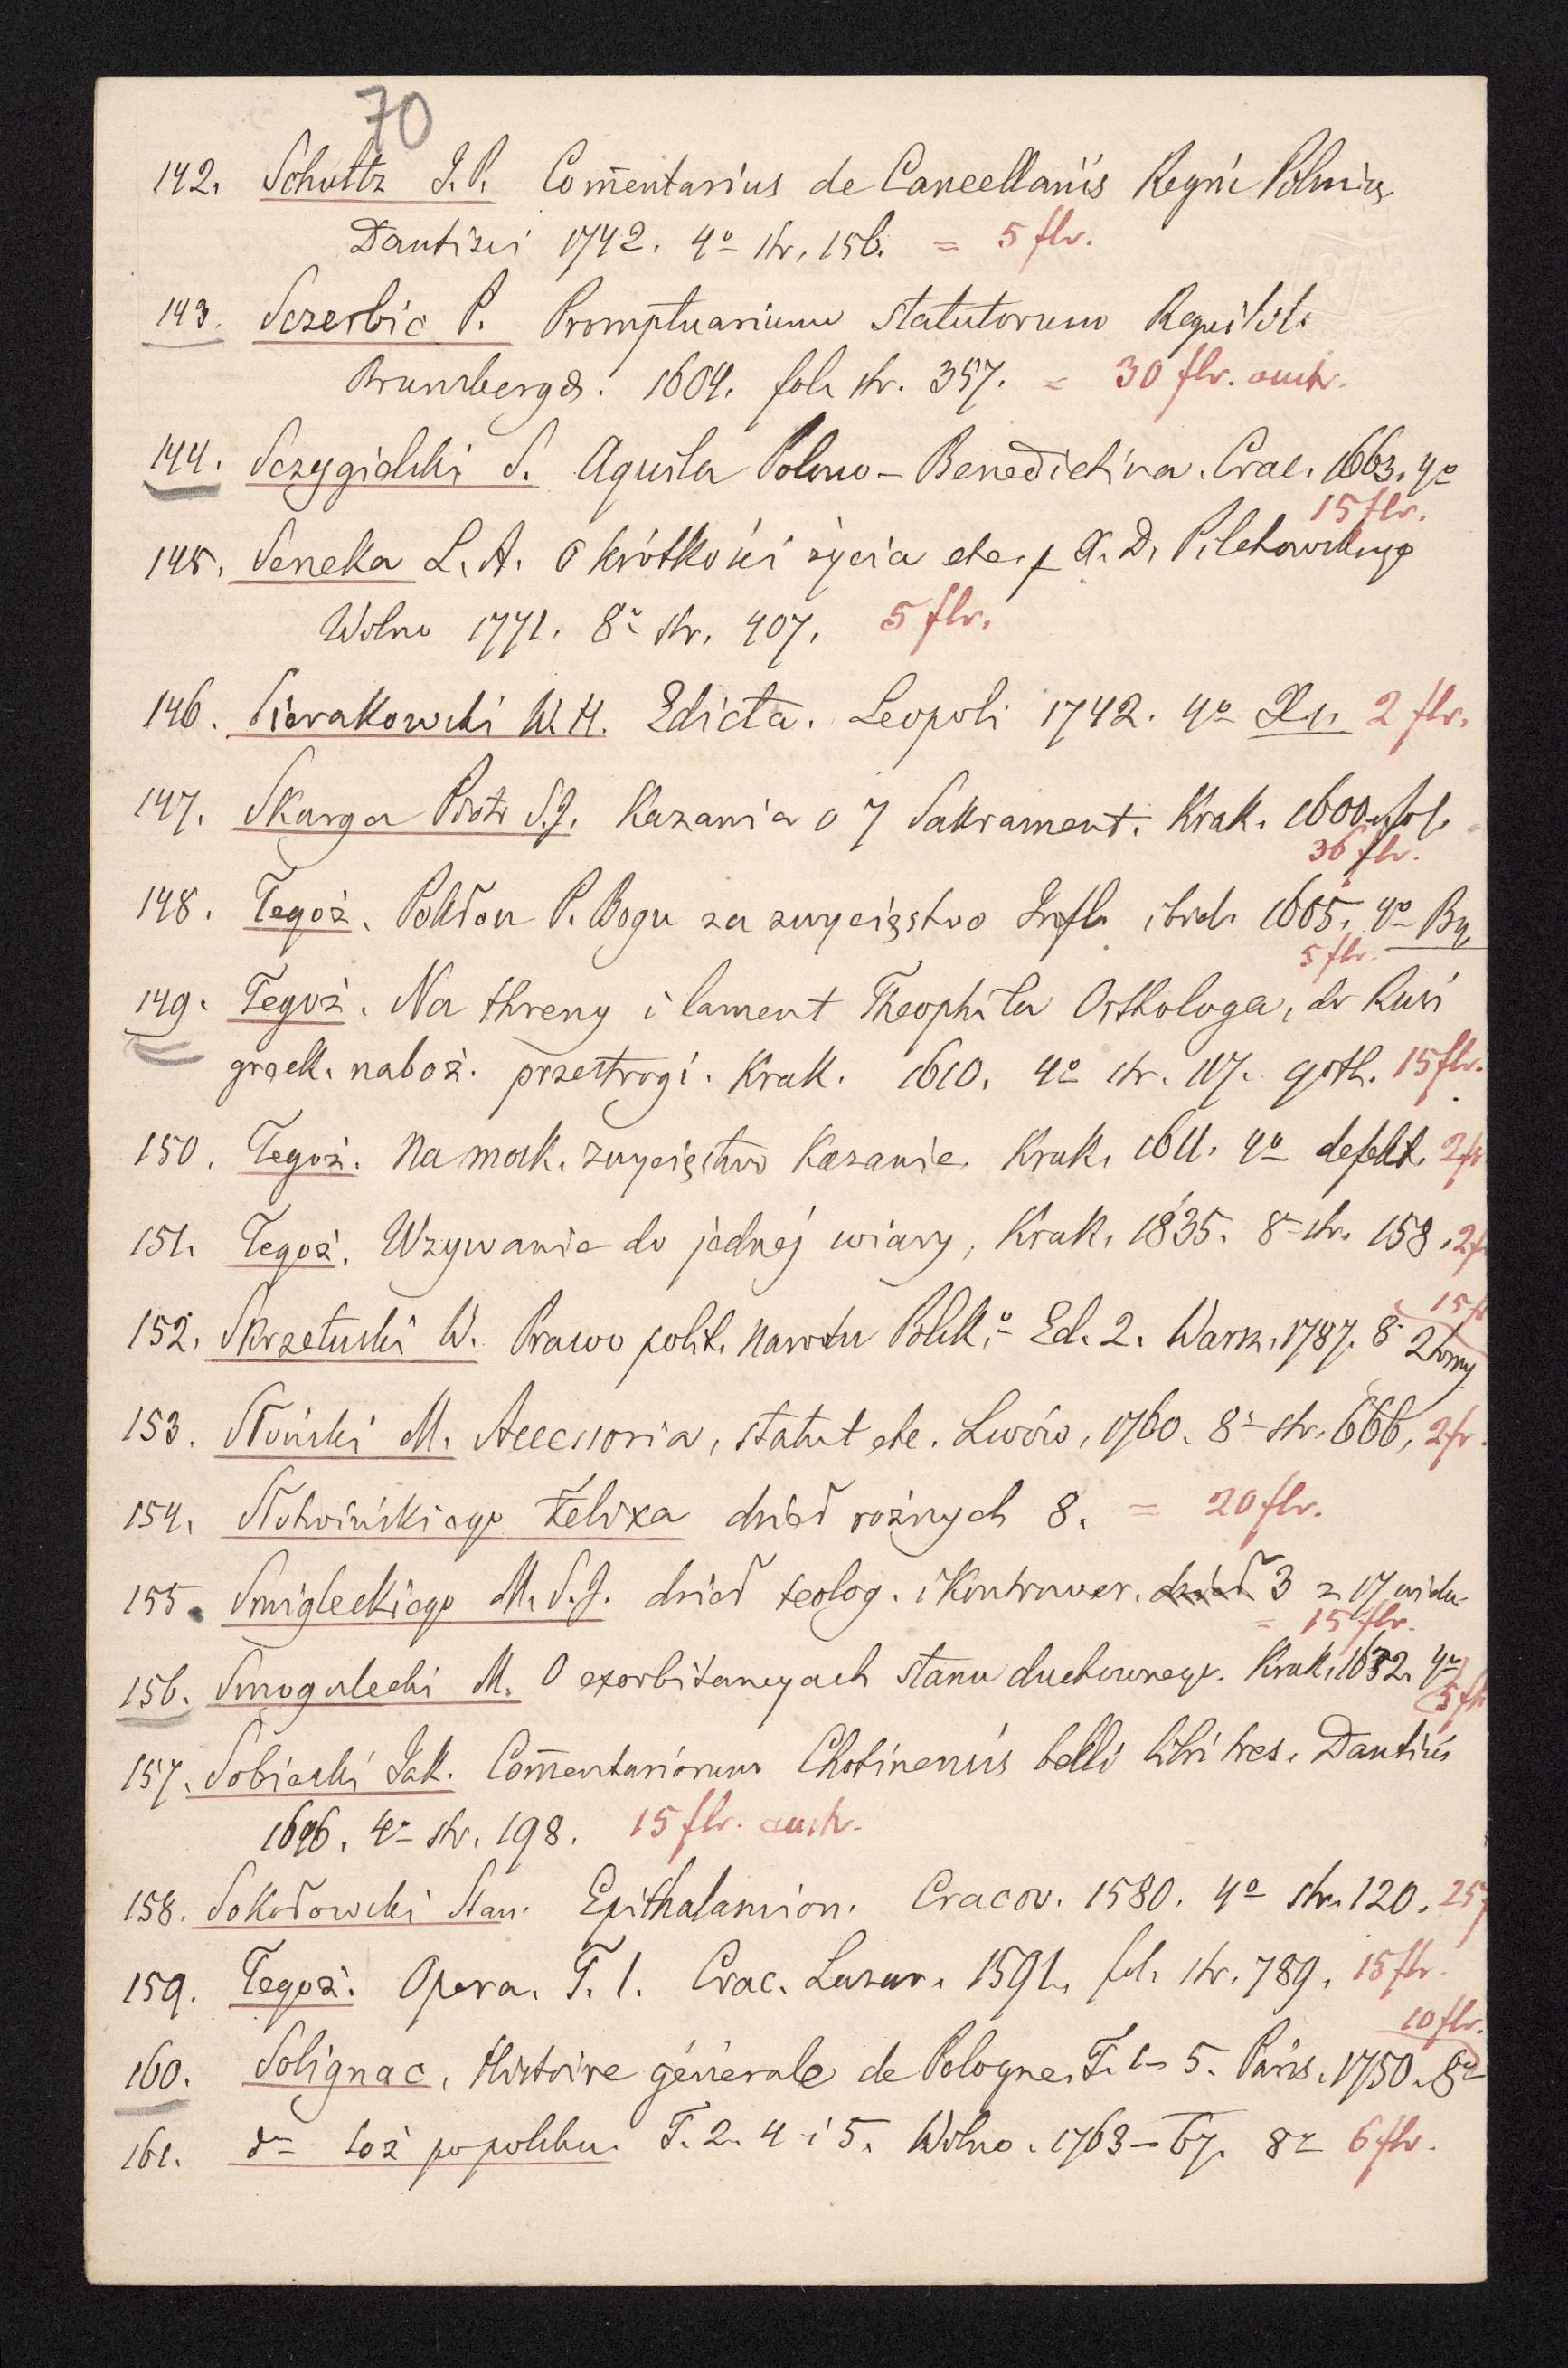 70
142. Schultz J. P. Com̄entarius de Cancellariis Regni Poloniae
Dantisci 1742. 4o str. 156. = 5 flr.
143. Sczerbic P. Promptuarium Statutorum Regni Pol.
Brunsbergae. 1604. fol. str. 357. = 30 flr. austr.
144. Sczygielski S. Aquila Polono-Benedictina. Crac. 1663. 4o
15 flr.
145. Seneka L. A. O krótkości życia etc. p. X. D. Pilchowskiego
Wilno 1771. 8o str. 407. 5 flr.
146. Sierakowski W. H. Edicta. Leopoli 1742. 4o 2 flr.
147. Skarga Piotr S. J. Kazania o 7 Sakrament. Krak. 1600. fol.
36 flr.
148. Tegoż. Pokłon P. Bogu za zwycięstwo Infl. ibid. 1605. 4o
5 flr.
149. Tegoż. Na threny i lament Theophila Orthologa, do Rusi
greck. naboż. przestrogi. Krak. 1610. 4o str. 117. goth. 15 flr.
150. Tegoż. Na mosk. zwycięstwo Kazanie. Krak. 1611. 4o defekt. 2 fl
151. Tegoż. Wzywanie do jednéj wiary, Krak. 1835. 8o str. 158. 2 f
152. Skrzetuski W. Prawo polit. narodu Polsk.o Ed. 2. Warsz. 1787. 8o 2 tomy 15 fl
153. Słoński M. Accessoria, statut etc. Lwów, 1760. 8o str. 666. 2 fr.
154. Słotwińskiego Felixa dzieł rożnych 8. = 20 flr.
155. Smigleckiego M. S. J. dzieł teolog. i Kontrower. dzieł 3 z 17 wieku
= 15 flr.
156. Smogulecki M. O exorbitancyach stanu duchownego. Krak. 1632. 4o
5 flr
157. Sobieski Jak. Com̄entariorum Chotinensis belli libri tres. Dantisci
1646. 4o str. 198. 15 flr. austr.
158. Sokołowski Stan. Epithalamion. Cracov. 1580. 4o str. 120. 25 f
159. Tegoż. Opera. T. 1. Crac. Lazar. 1591. fol. str. 789. 15 flr.
10 flr.
160. Solignac, Histoire générale de Pologne. T. 1-5. Paris. 1750. 8o
161. do toż po polsku. T. 2. 4 i 5. Wilno. 1763-67. 8o 6 flr.